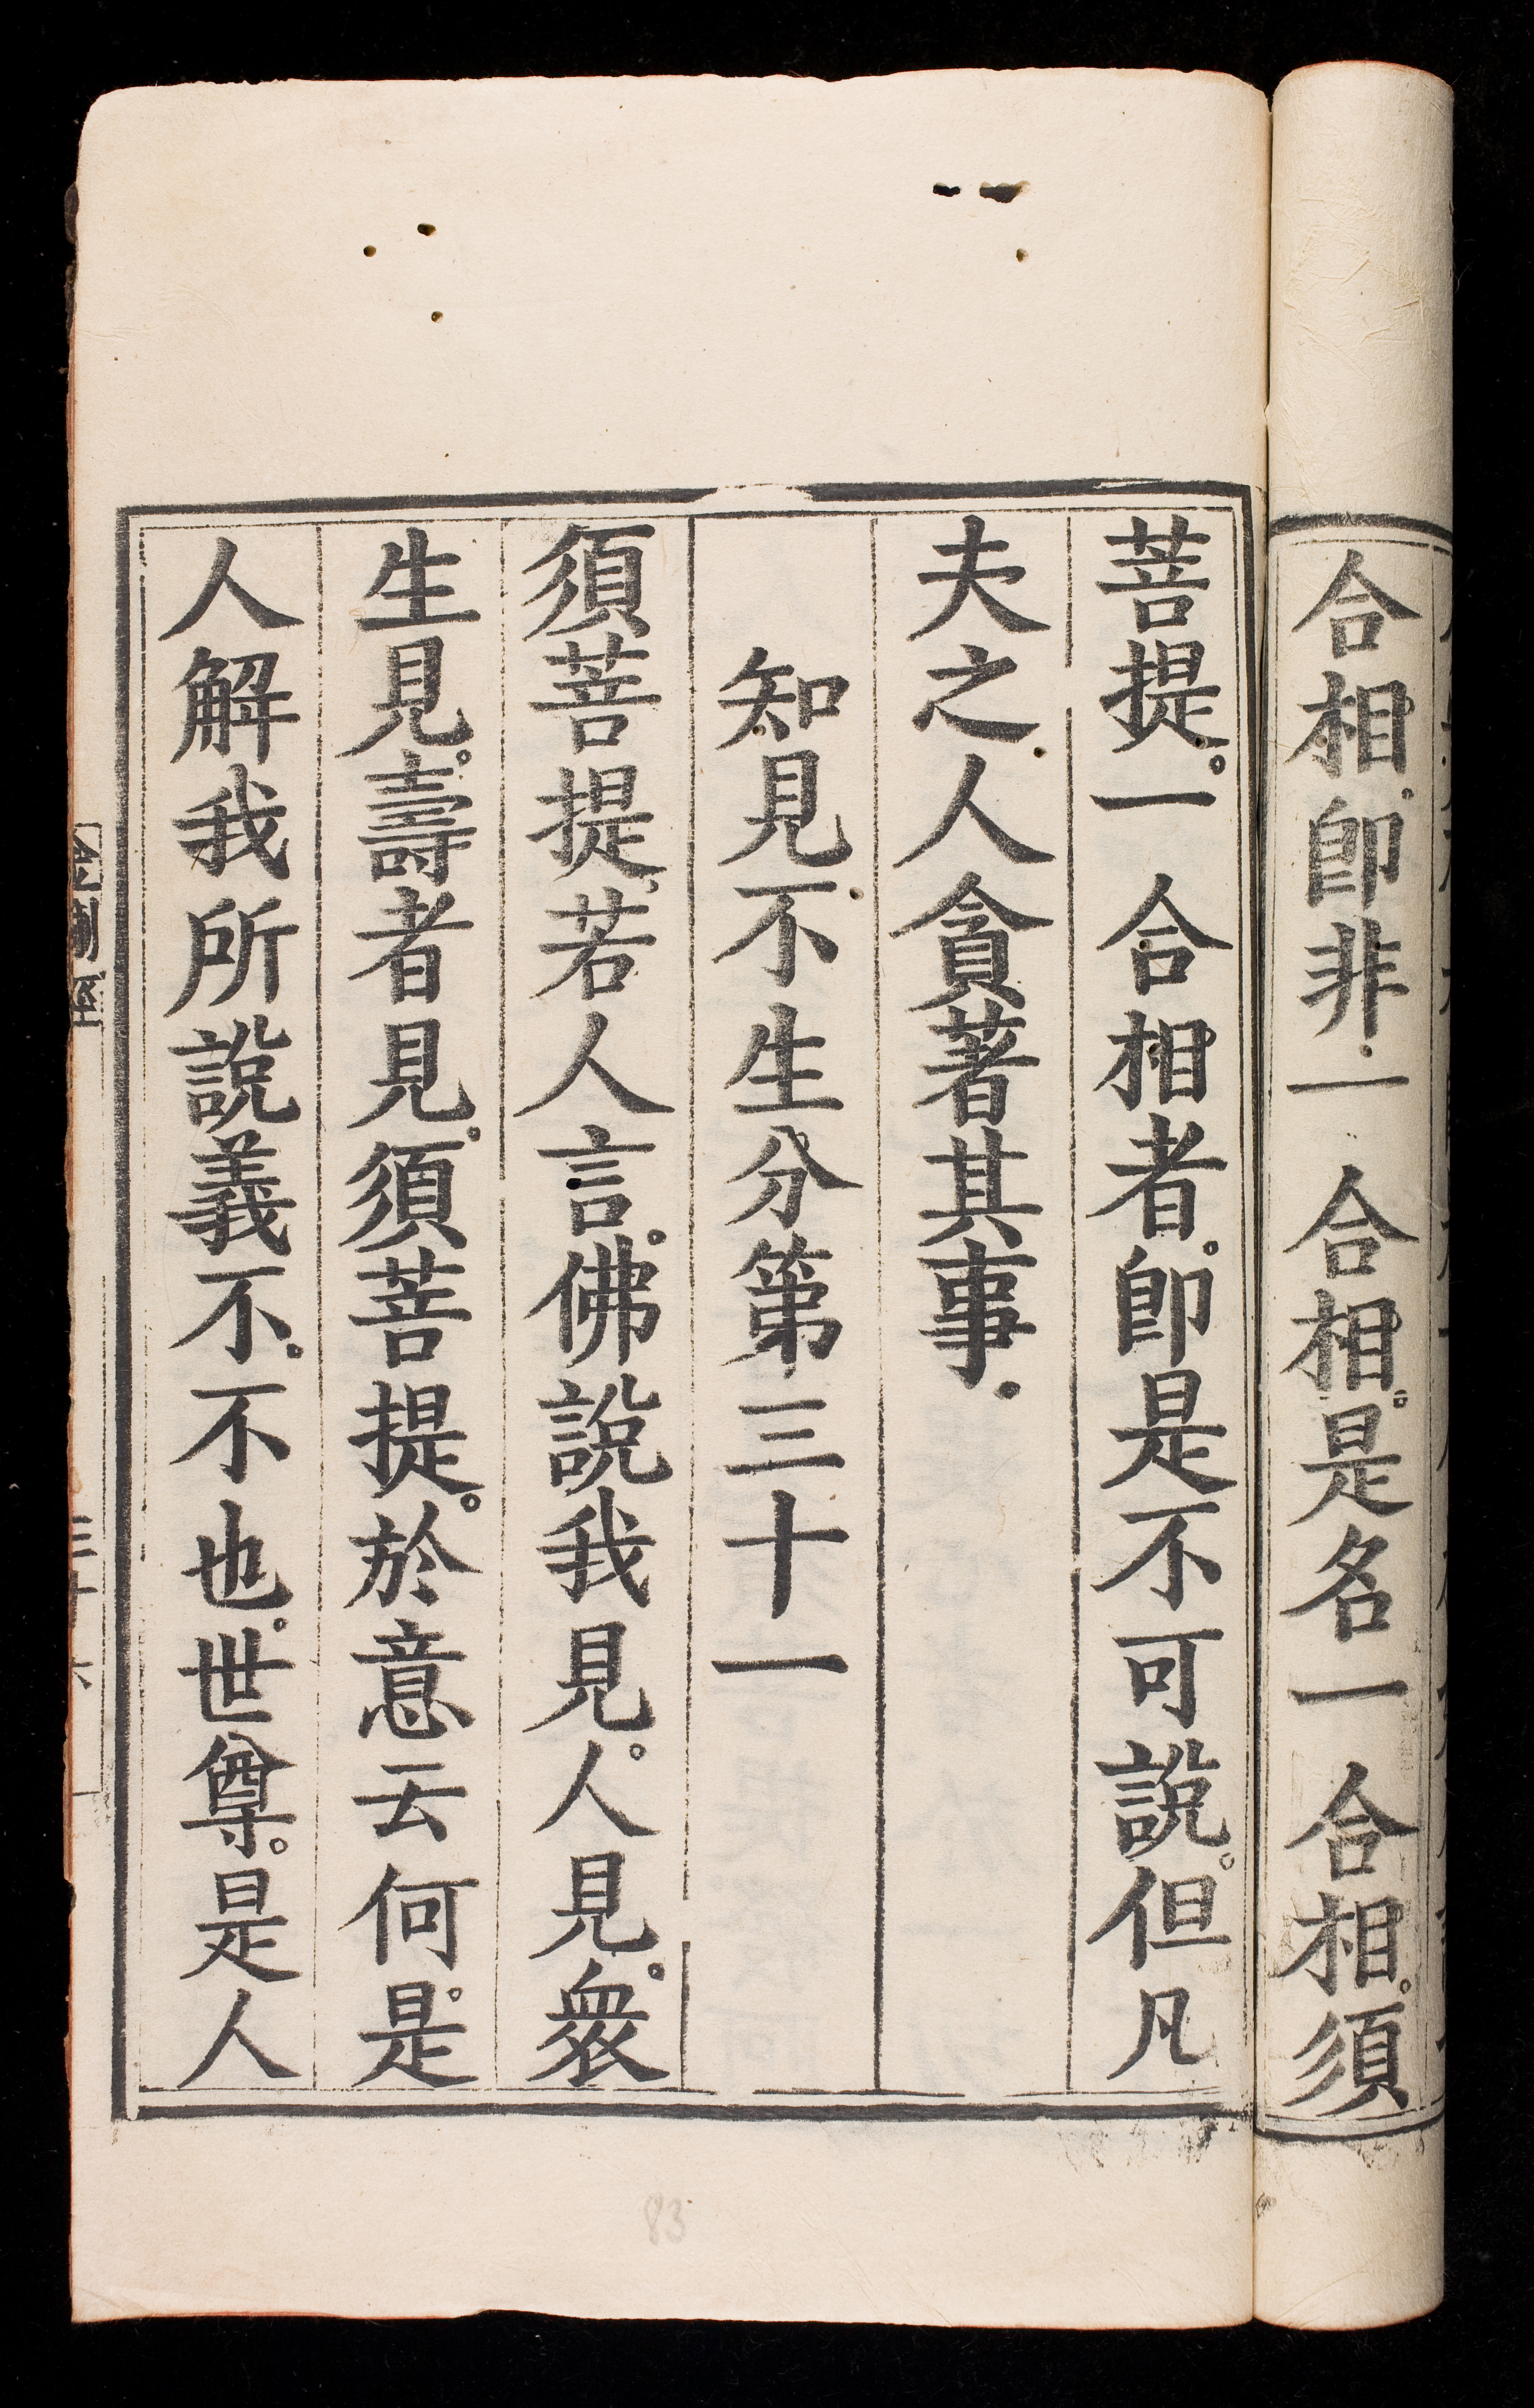 合相。即非一合相。是名一合相。須
菩提。一合相者。即是不可說。但凡
夫之人貪著其事。
知見不生分第三十一
須菩提。若人言。佛說我見。人見。衆
生見。壽者見。須菩提。於意云何。是
人解我所說義不。不也。世尊。是人
83